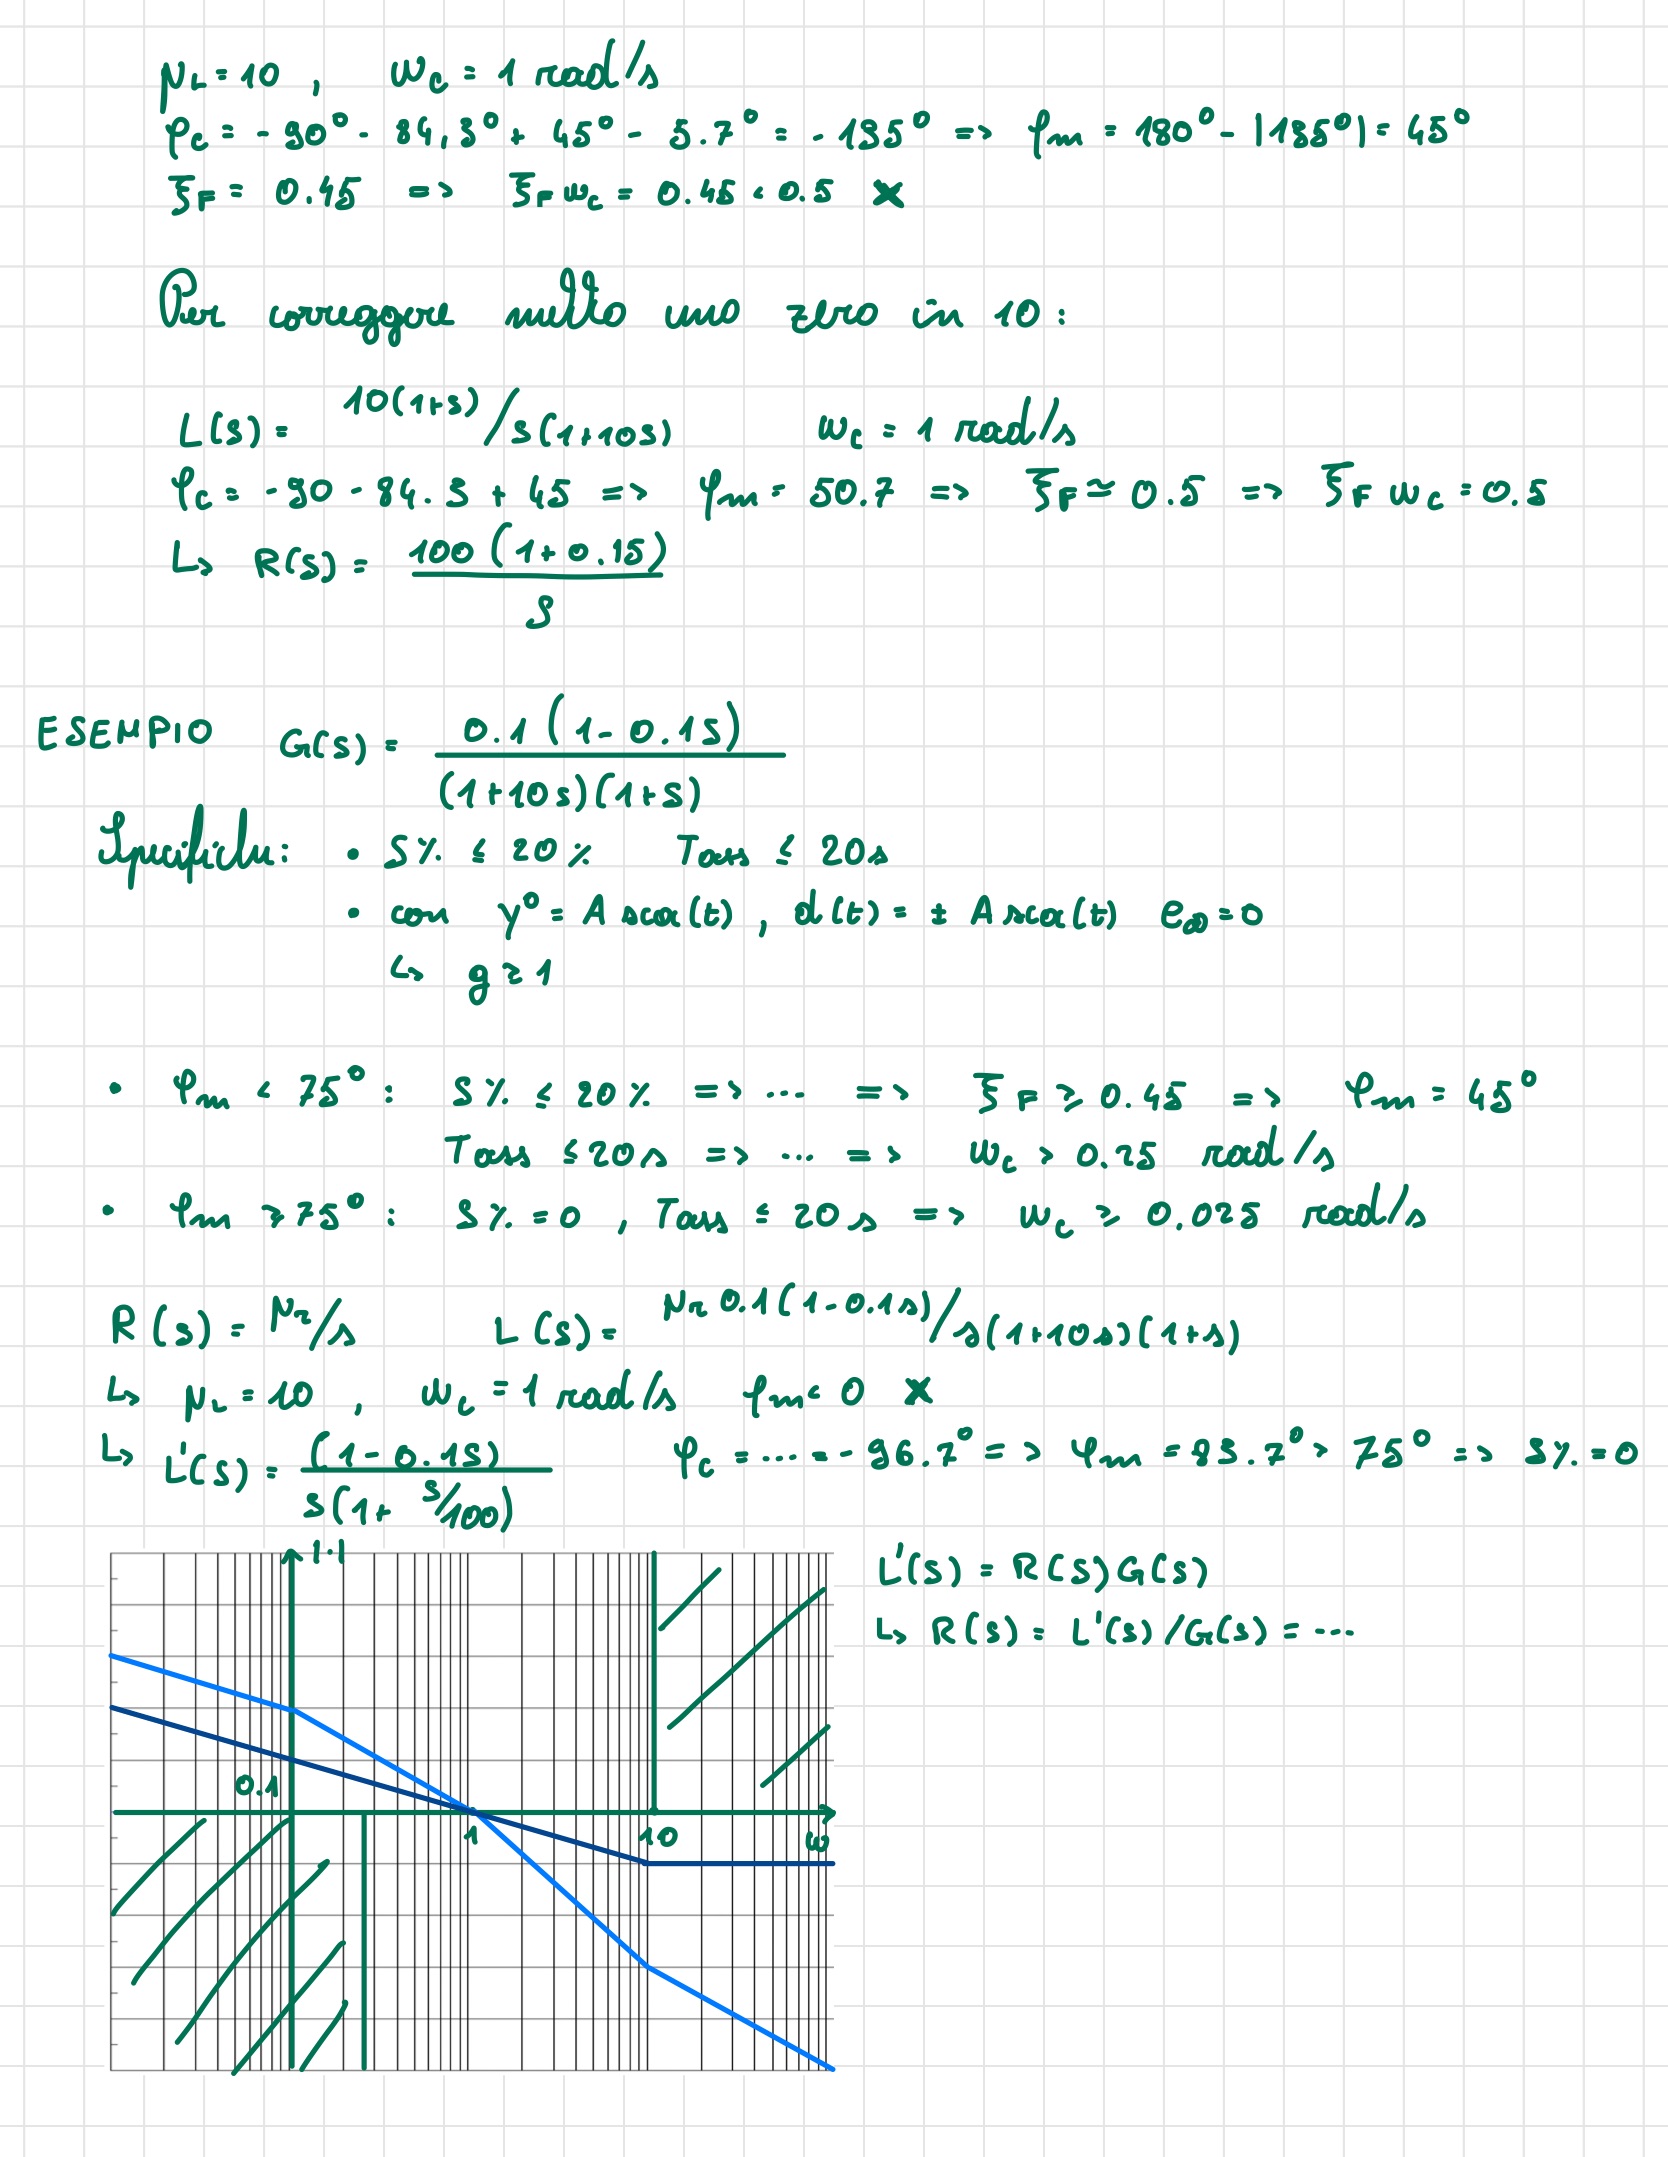 μL = 10 , ωc = 1 rad/s
φc = -90° - 84,3° + 45° - 5.7° = -135° => φm = 180° - |135°| = 45°
ξF = 0.45 => ξF ωc = 0.45 < 0.5 ×
Per correggere metto uno zero in 10 :
L(s) = 10(1+s)/s(1+10s) ωc = 1 rad/s
φc = -90 - 84.3 + 45 => φm = 50.7 => ξF ≃ 0.5 => ξF ωc = 0.5
↳ R(s) = 100 (1+0.1s) / s
ESEMPIO G(s) = 0.1 (1 - 0.1s) / (1+10s)(1+s)
Specifiche: • S% ≤ 20% Tass ≤ 20s
• con y° = A sca(t) , d(t) = ± A sca(t) e∞ = 0
↳ g ≥ 1
• φm < 75° : S% ≤ 20% => ... => ξF ≥ 0.45 => φm = 45°
Tass ≤ 20s => ... => ωc > 0.25 rad/s
• φm > 75° : S% = 0 , Tass ≤ 20s => ωc ≥ 0.025 rad/s
R(s) = μr/s L(s) = μr 0.1(1-0.1s)/s(1+10s)(1+s)
↳ μL = 10 , ωc = 1 rad/s φm < 0 ×
↳ L'(s) = (1 - 0.1s) / s(1+ s/100) φc = ... = -96.7° => φm = 83.7° > 75° => S% = 0
|·|
L'(s) = R(s)G(s)
↳ R(s) = L'(s)/G(s) = ...
0.1
1 10 ω